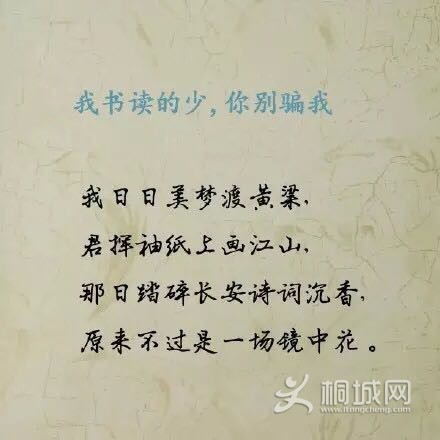 我书读的少，你别骗我
我日日美梦渡黄粱，
君挥袖纸上画江山，
那日踏碎长安诗词沉香，
原来不过是一场镜中花。
桐城网
www.itongcheng.com